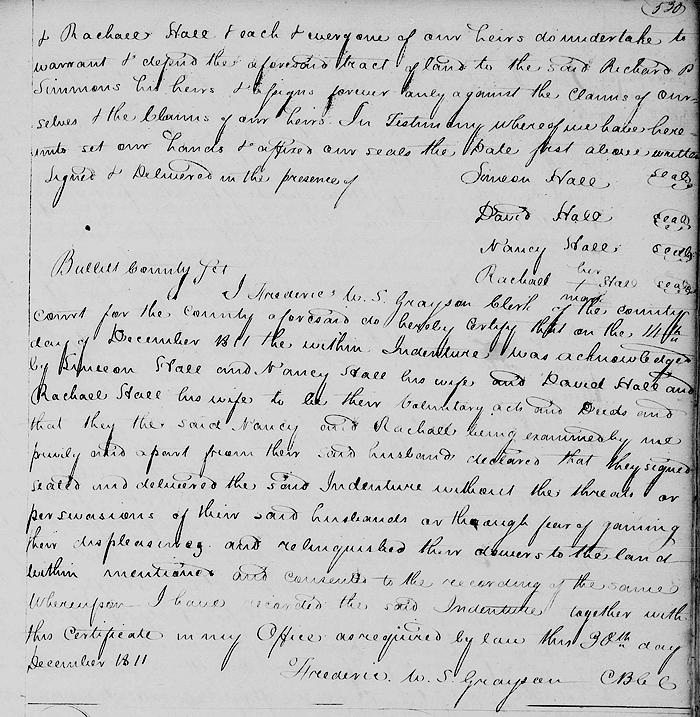 530
& Rachael Hall & each & everyone of our heirs do undertake to
warrant & defend the aforesaid tract of land to the said Richard P
Simmons his heirs & assigns forever only against the Claims of our
selves & the Claims of our heirs In Testimony whereof we have here
unto set our hands & affixed our seals the Date first above written
Signed & Delivered in the presence of
Simeon Hall seal
David Hall seal
Nancy Hall seal
Rachael her + mark Hall seal
Bullitt County Sct
I Frederic W. S. Grayson Clerk of the county
court for the County aforesaid do hereby Certify that on the 14th
day of December 1811 the within Indenture was acknowledged
by Simeon Hall and Nancy Hall his wife and David Hall and
Rachael Hall his wife to be their voluntary acts and Deeds and
that they the said Nancy and Rachall being examined by me
privily and apart from their said husbands declared that they signed
sealed and delivered the said Indenture without the threats or
perswasions of their said husbands or through fear of gaining
their displeasures and relinquished their dowers to the land
within mentioned and consented to the recording of the same
Whereupon I have recorded the said Indenture together with
this Certificate in my Office as required by law this 30th day
December 1811
Frederic W. S. Grayson CBCC